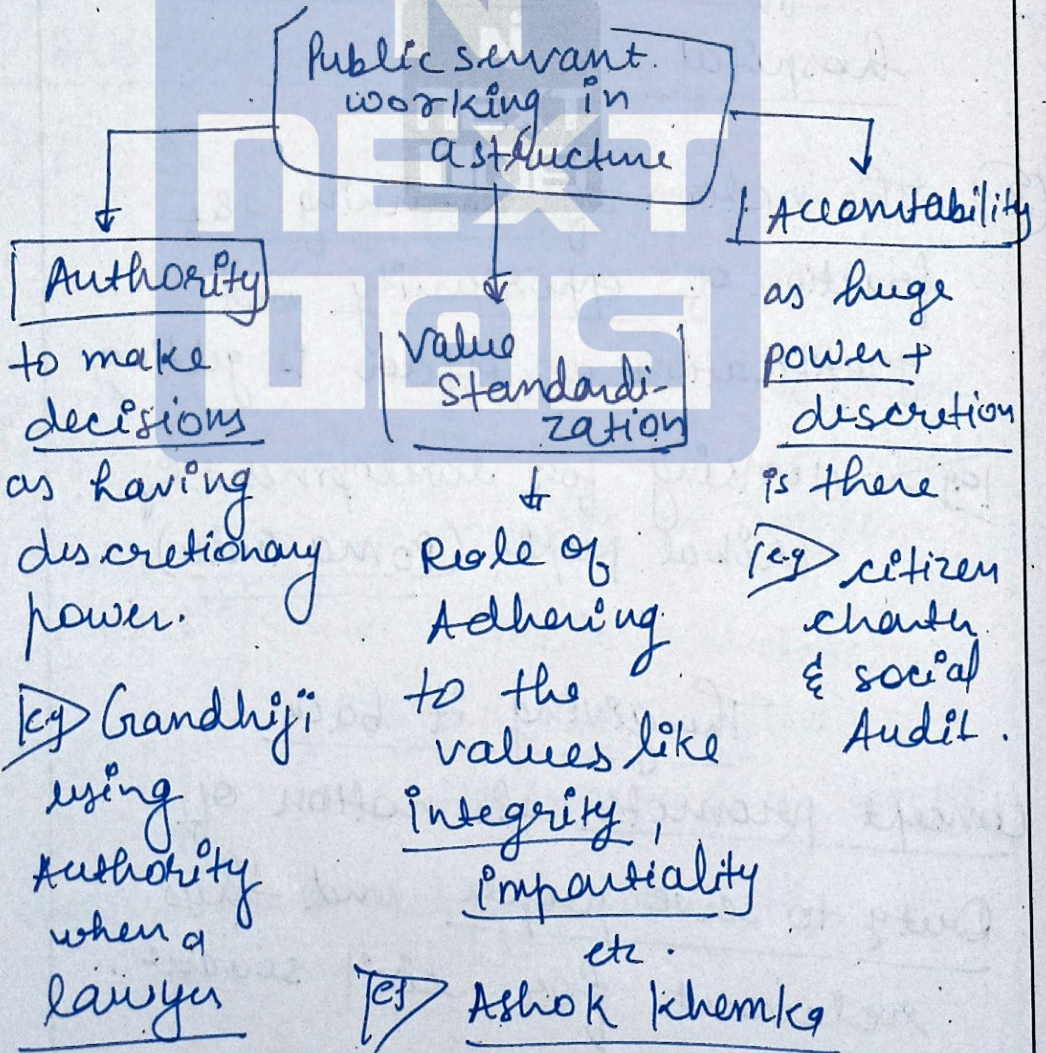 Public servant
working in
a structure
Authority
to make
decisions
as having
discretionary
power.
eg Gandhiji
using
Authority
when a
lawyer
Value
Standardi-
zation
Role of
Adhering
to the
values like
integrity,
impartiality
etc.
eg Ashok Khemka
Accountability
as huge
power +
discretion
is there
eg citizen
charter
& social
Audit.
NEXT
IAS